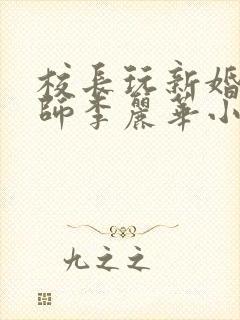 校長玩新婚
師李麗華小
九之之